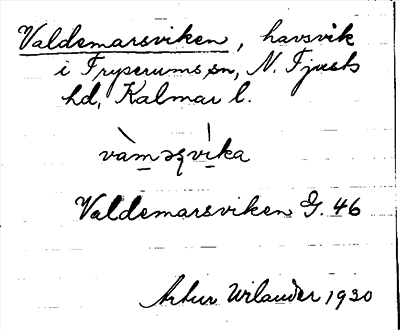 Valdemarsviken, havsvik
i Tryserums sn, N. Tjusts
hd, Kalmar l.
vàm̲əʒví̲ka
Valdemarsviken G. 46
Artur Wilander 1930